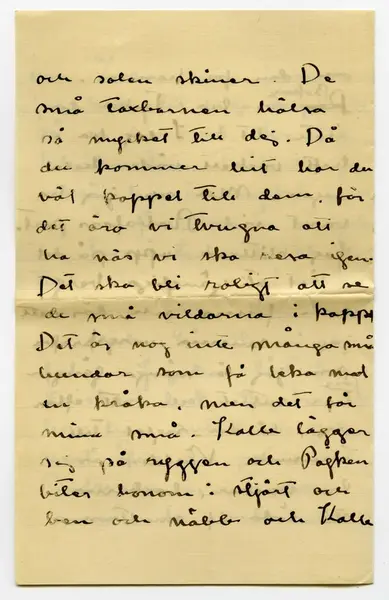 och solen skiner. De
små taxbarnen hälsa
så mycket till dej. Då
du kommer hit har du
väl koppel till dem, för
det äro vi tvugna att
ha när vi ska resa igen.
Det ska bli roligt att se
de små vildarna i koppel
Det är nog inte många små
hundar som få leka med
en kråka, men det får
mina små. Kalle lägger
sig på ryggen och Pågken
biter honom i stjärt och
ben och näbb och Kalle